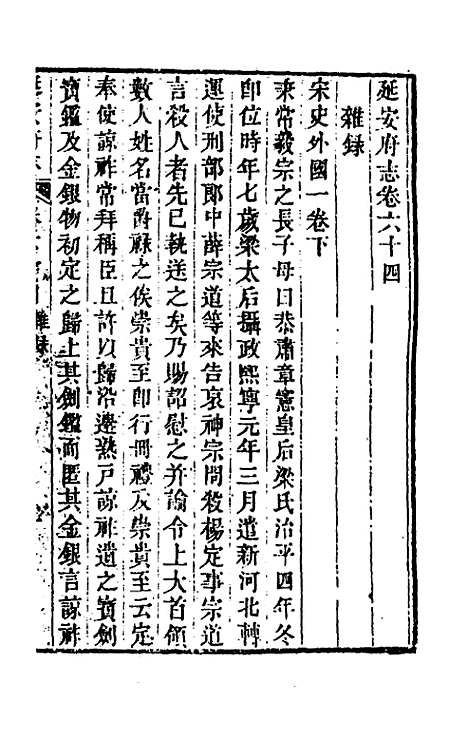 延安府志卷六十四
雜錄
宋史外國一卷下
秉常毅宗之長子母曰恭肅章憲皇后梁氏治平四年冬
卽位時年七歲梁太后攝政熙寧元年三月遣新河北轉
運使刑部郎中薛宗道等來告哀神宗問殺楊定事宗道
言殺人者先已執送之矣乃賜詔慰之并諭令上大首領
數人姓名當爵祿之俟崇貴至卽行冊禮及崇貴至云定
奉使諒祚常拜稱臣且許以歸沿邊熟戶諒祚遺之寶劍
寶鑑及金銀物初定之歸上其劍鑑而匿其金銀言諒祚
雜錄